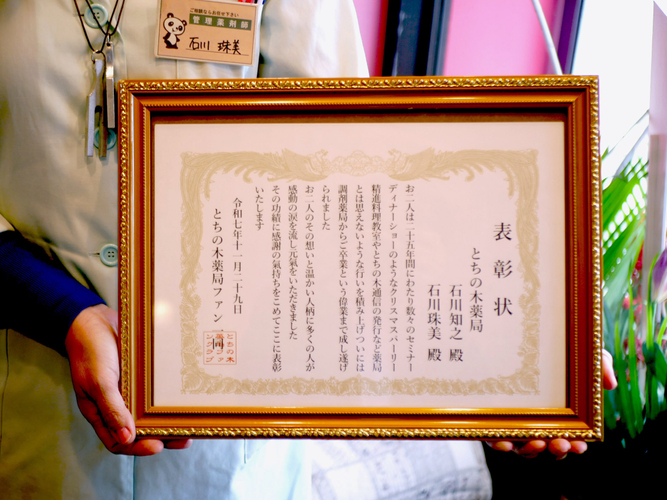 ご相談ならお任せ下さい
管理薬剤師
石川 珠美
表彰状
とちの木薬局
石川知之 殿
石川珠美 殿
お二人は二十五年間にわたり数々のセミナー
ディナーショーのようなクリスマスパーリー
精進料理教室やとちの木通信の発行など薬局
とは思えないような行いを積み上げついには
調剤薬局からご卒業という偉業まで成し遂げ
られました
お二人のその想いと温かい人柄に多くの人が
感動の涙を流し元氣をいただきました
その功績に感謝の氣持ちをこめてここに表彰
いたします
令和七年十一月二十九日
とちの木薬局ファン一同